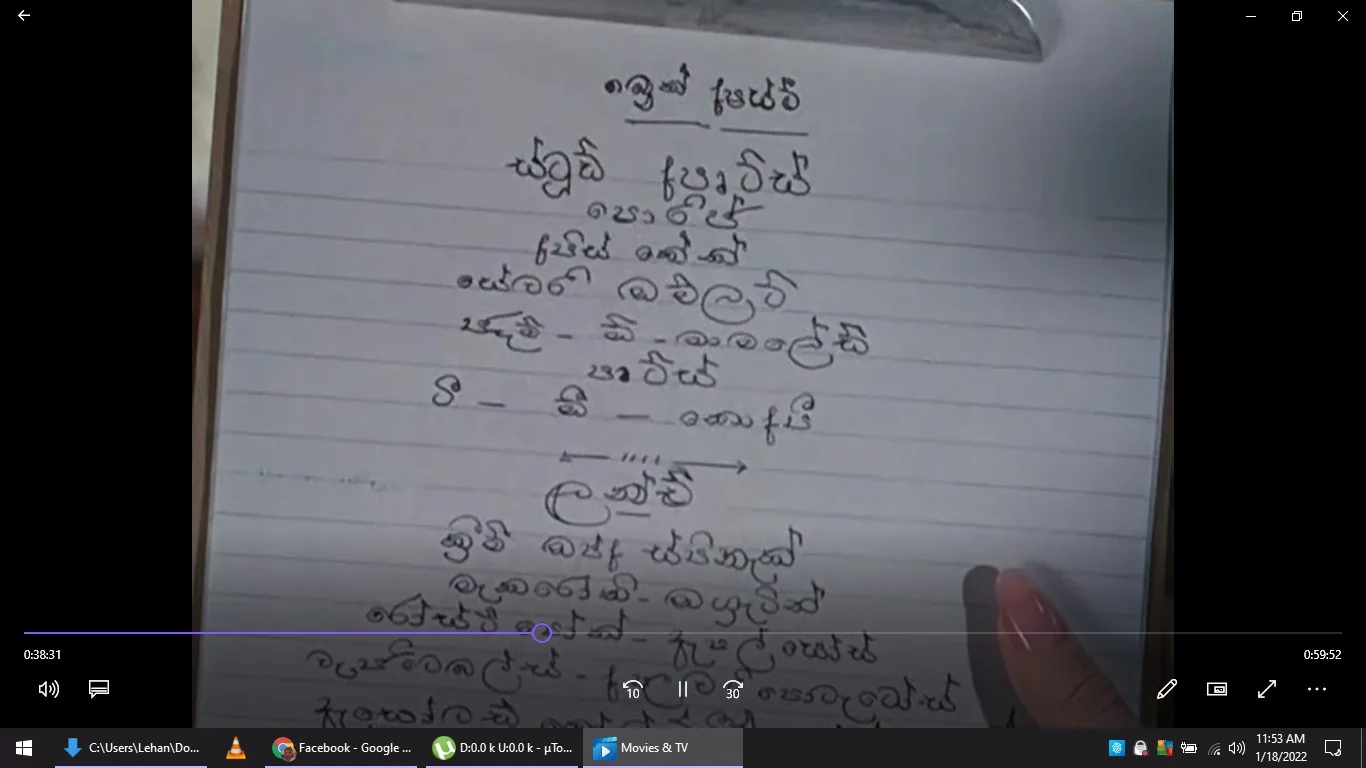 බ්‍රෙක් ෆස්ට්
ස්ටූඩ් ෆෲට්ස්
පොරිජ්
ෆිස් කේක්
සේවරි ඔම්ලට්
ජෑම් - ඩි - මාමලේඩ්
ෆෲට්ස්
ටී - ඩි - කොෆී
ලන්ච්
ක්‍රීම් ඔෆ් ස්පිනැක්
මැකරෝනි - ඔග්‍රැටින්
රෝස්ට් - ඇපල් සෝස්
වැජිටෙබල්ස් - පොටැටෝස්
0:38:31
0:59:52
10
30
C:\Users\Lehan\Do...
Facebook - Google ...
D:0.0 k U:0.0 k - µTo...
Movies & TV
11:53 AM
1/18/2022